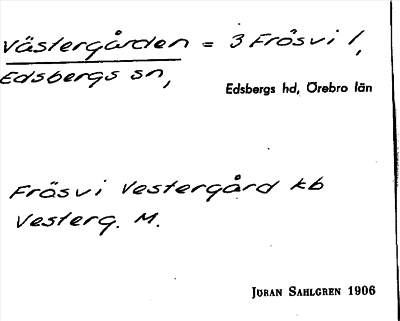 Västergården = 3 Frösvi 1,
Edsbergs sn,
Edsbergs hd, Örebro län
Frösvi Vestergård kb
Vesterg. M.
JÖRAN SAHLGREN 1906